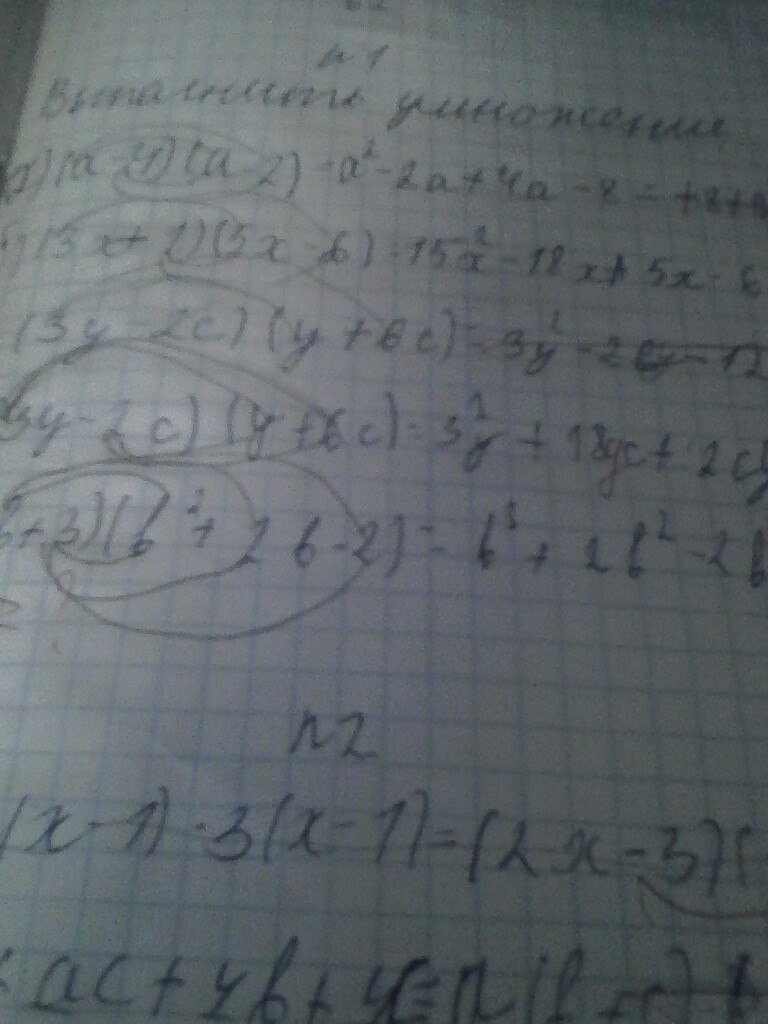 n1
Выталнить умножение
(a-4)(a-2)=a²-2a+4a-8=
(3x+1)(5x-6)=15x²-18x+5x-6
(3y-2c)(y+6c)=3y²
3y-2c)(y+6c)=3y²+18yc+2cy
b+3)(b²+2b-2)=b³+2b²-2b
n2
(x-1)-3(x-1)=(2x-3)(
ac+4b+4c=